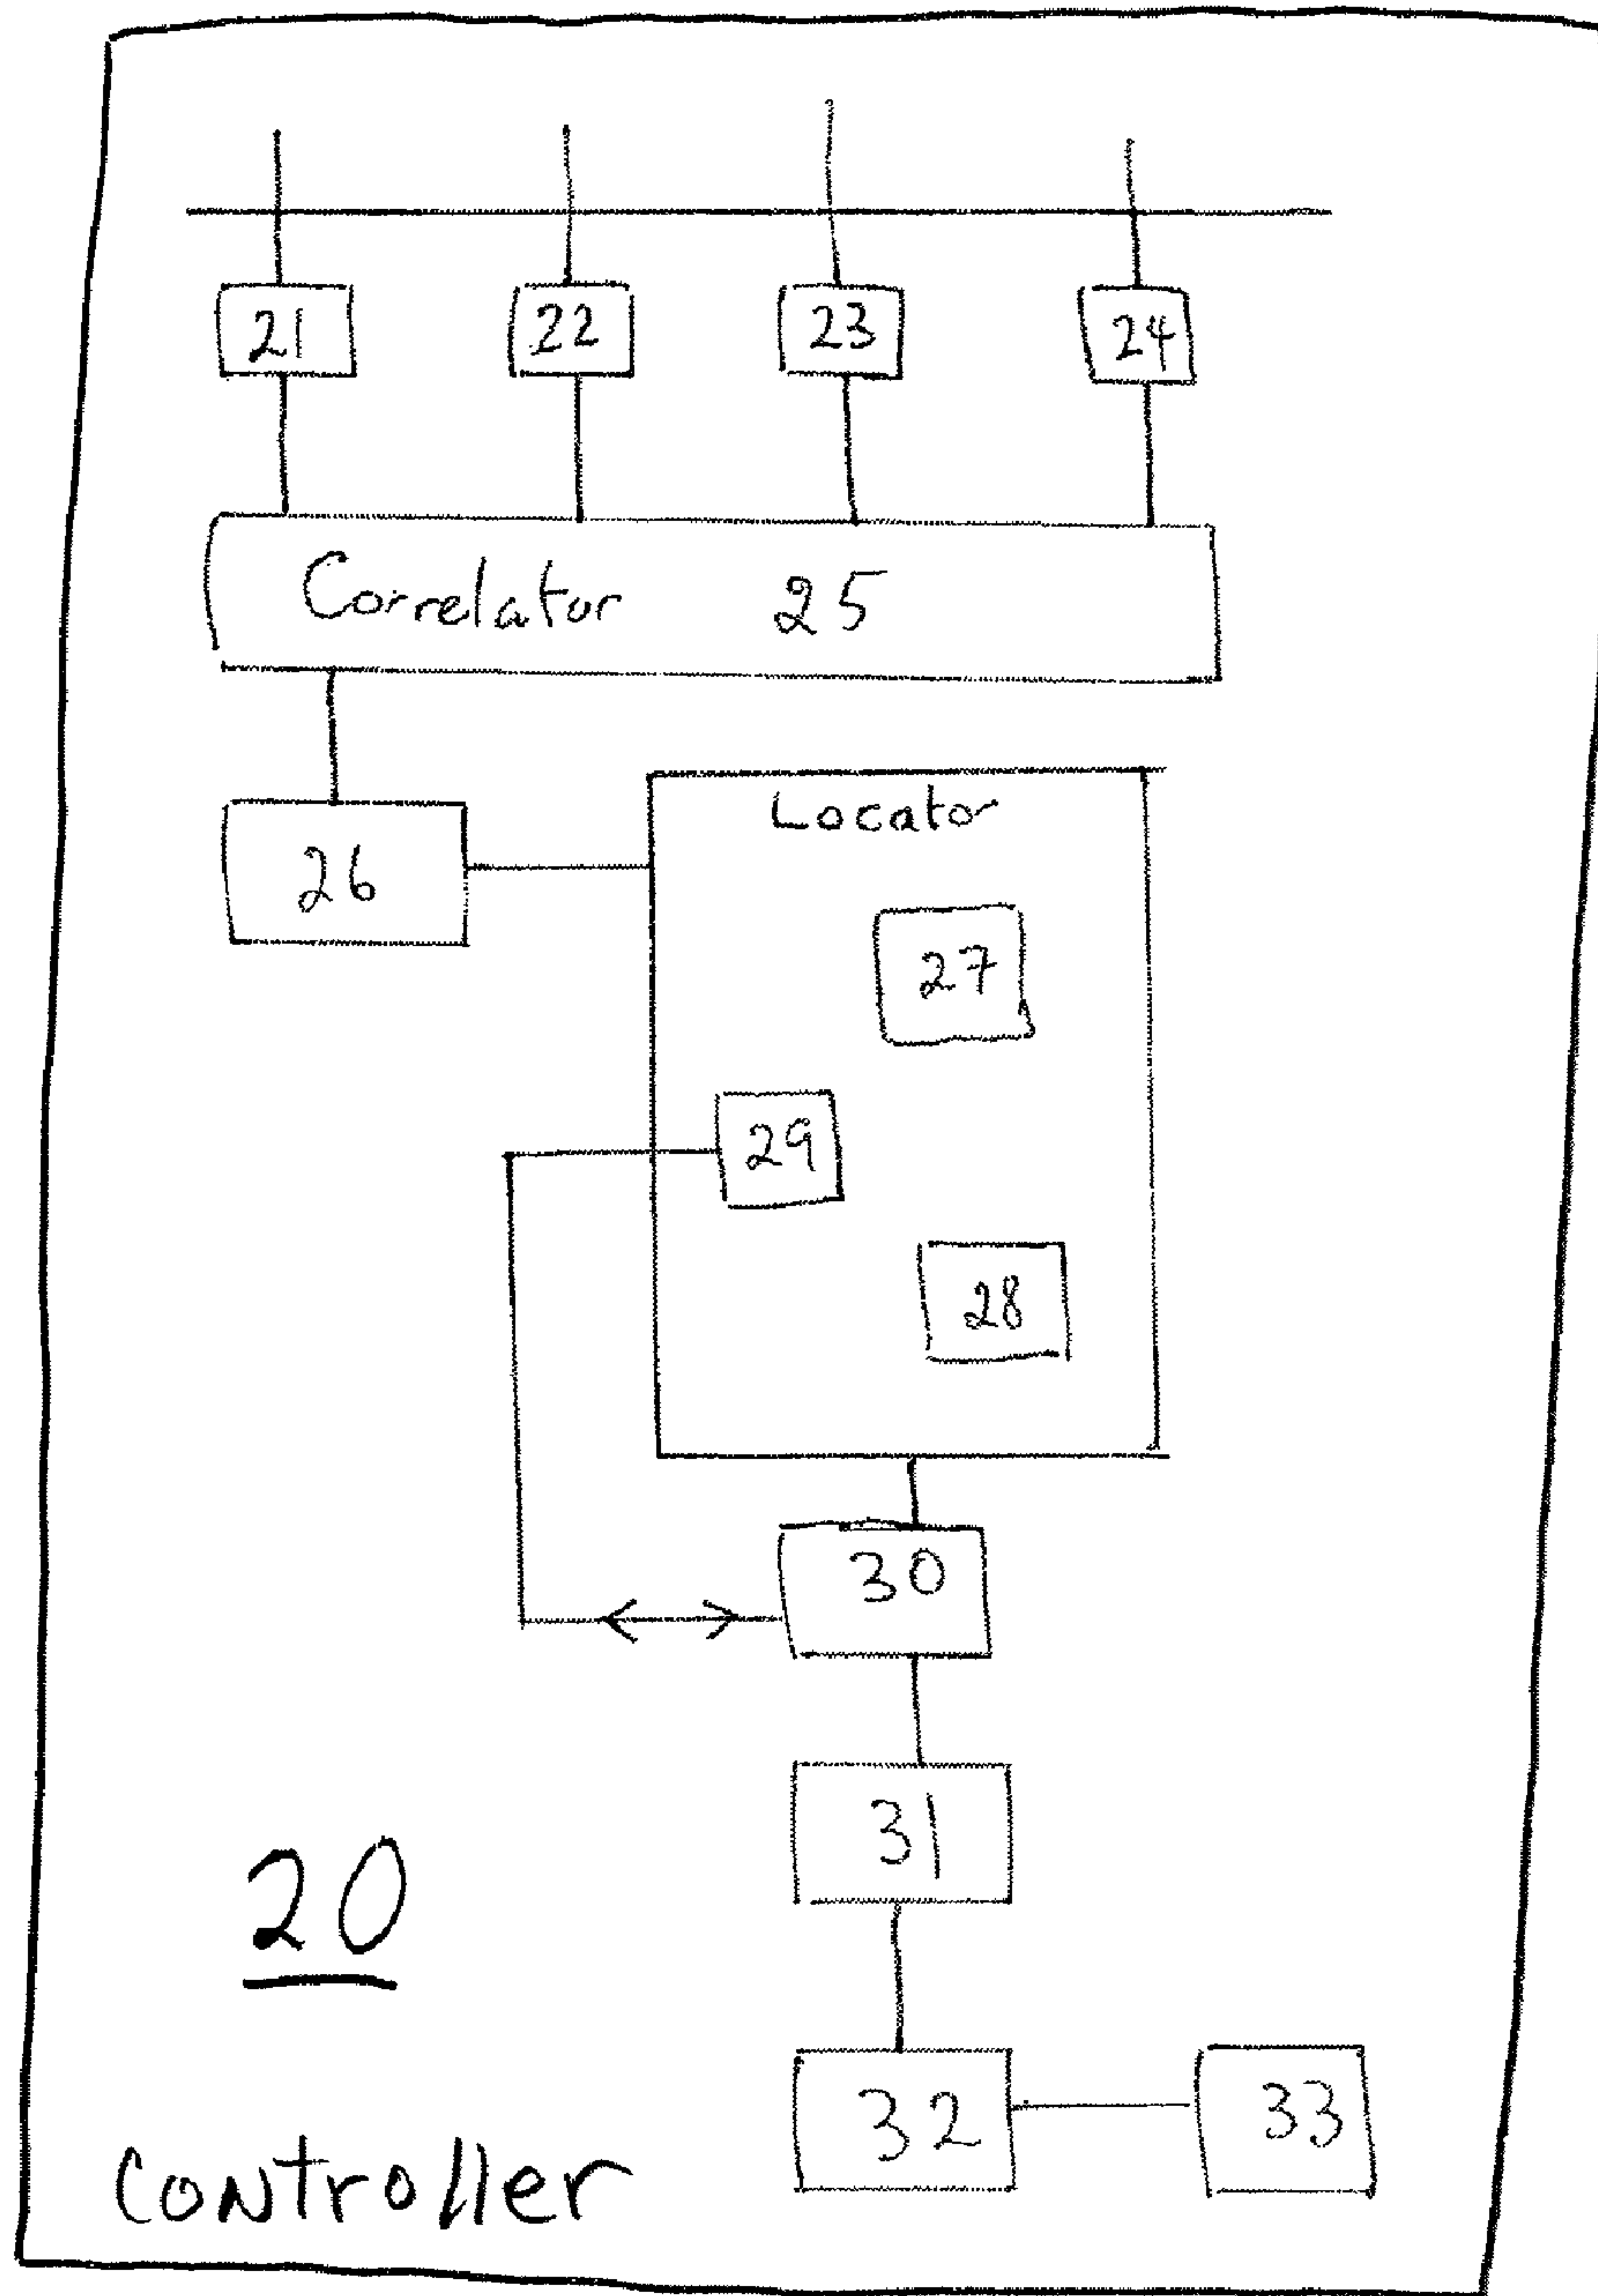 21 22 23 24
Correlator 25
Locator
26
27
29
28
30
31
20
32 33
Controller